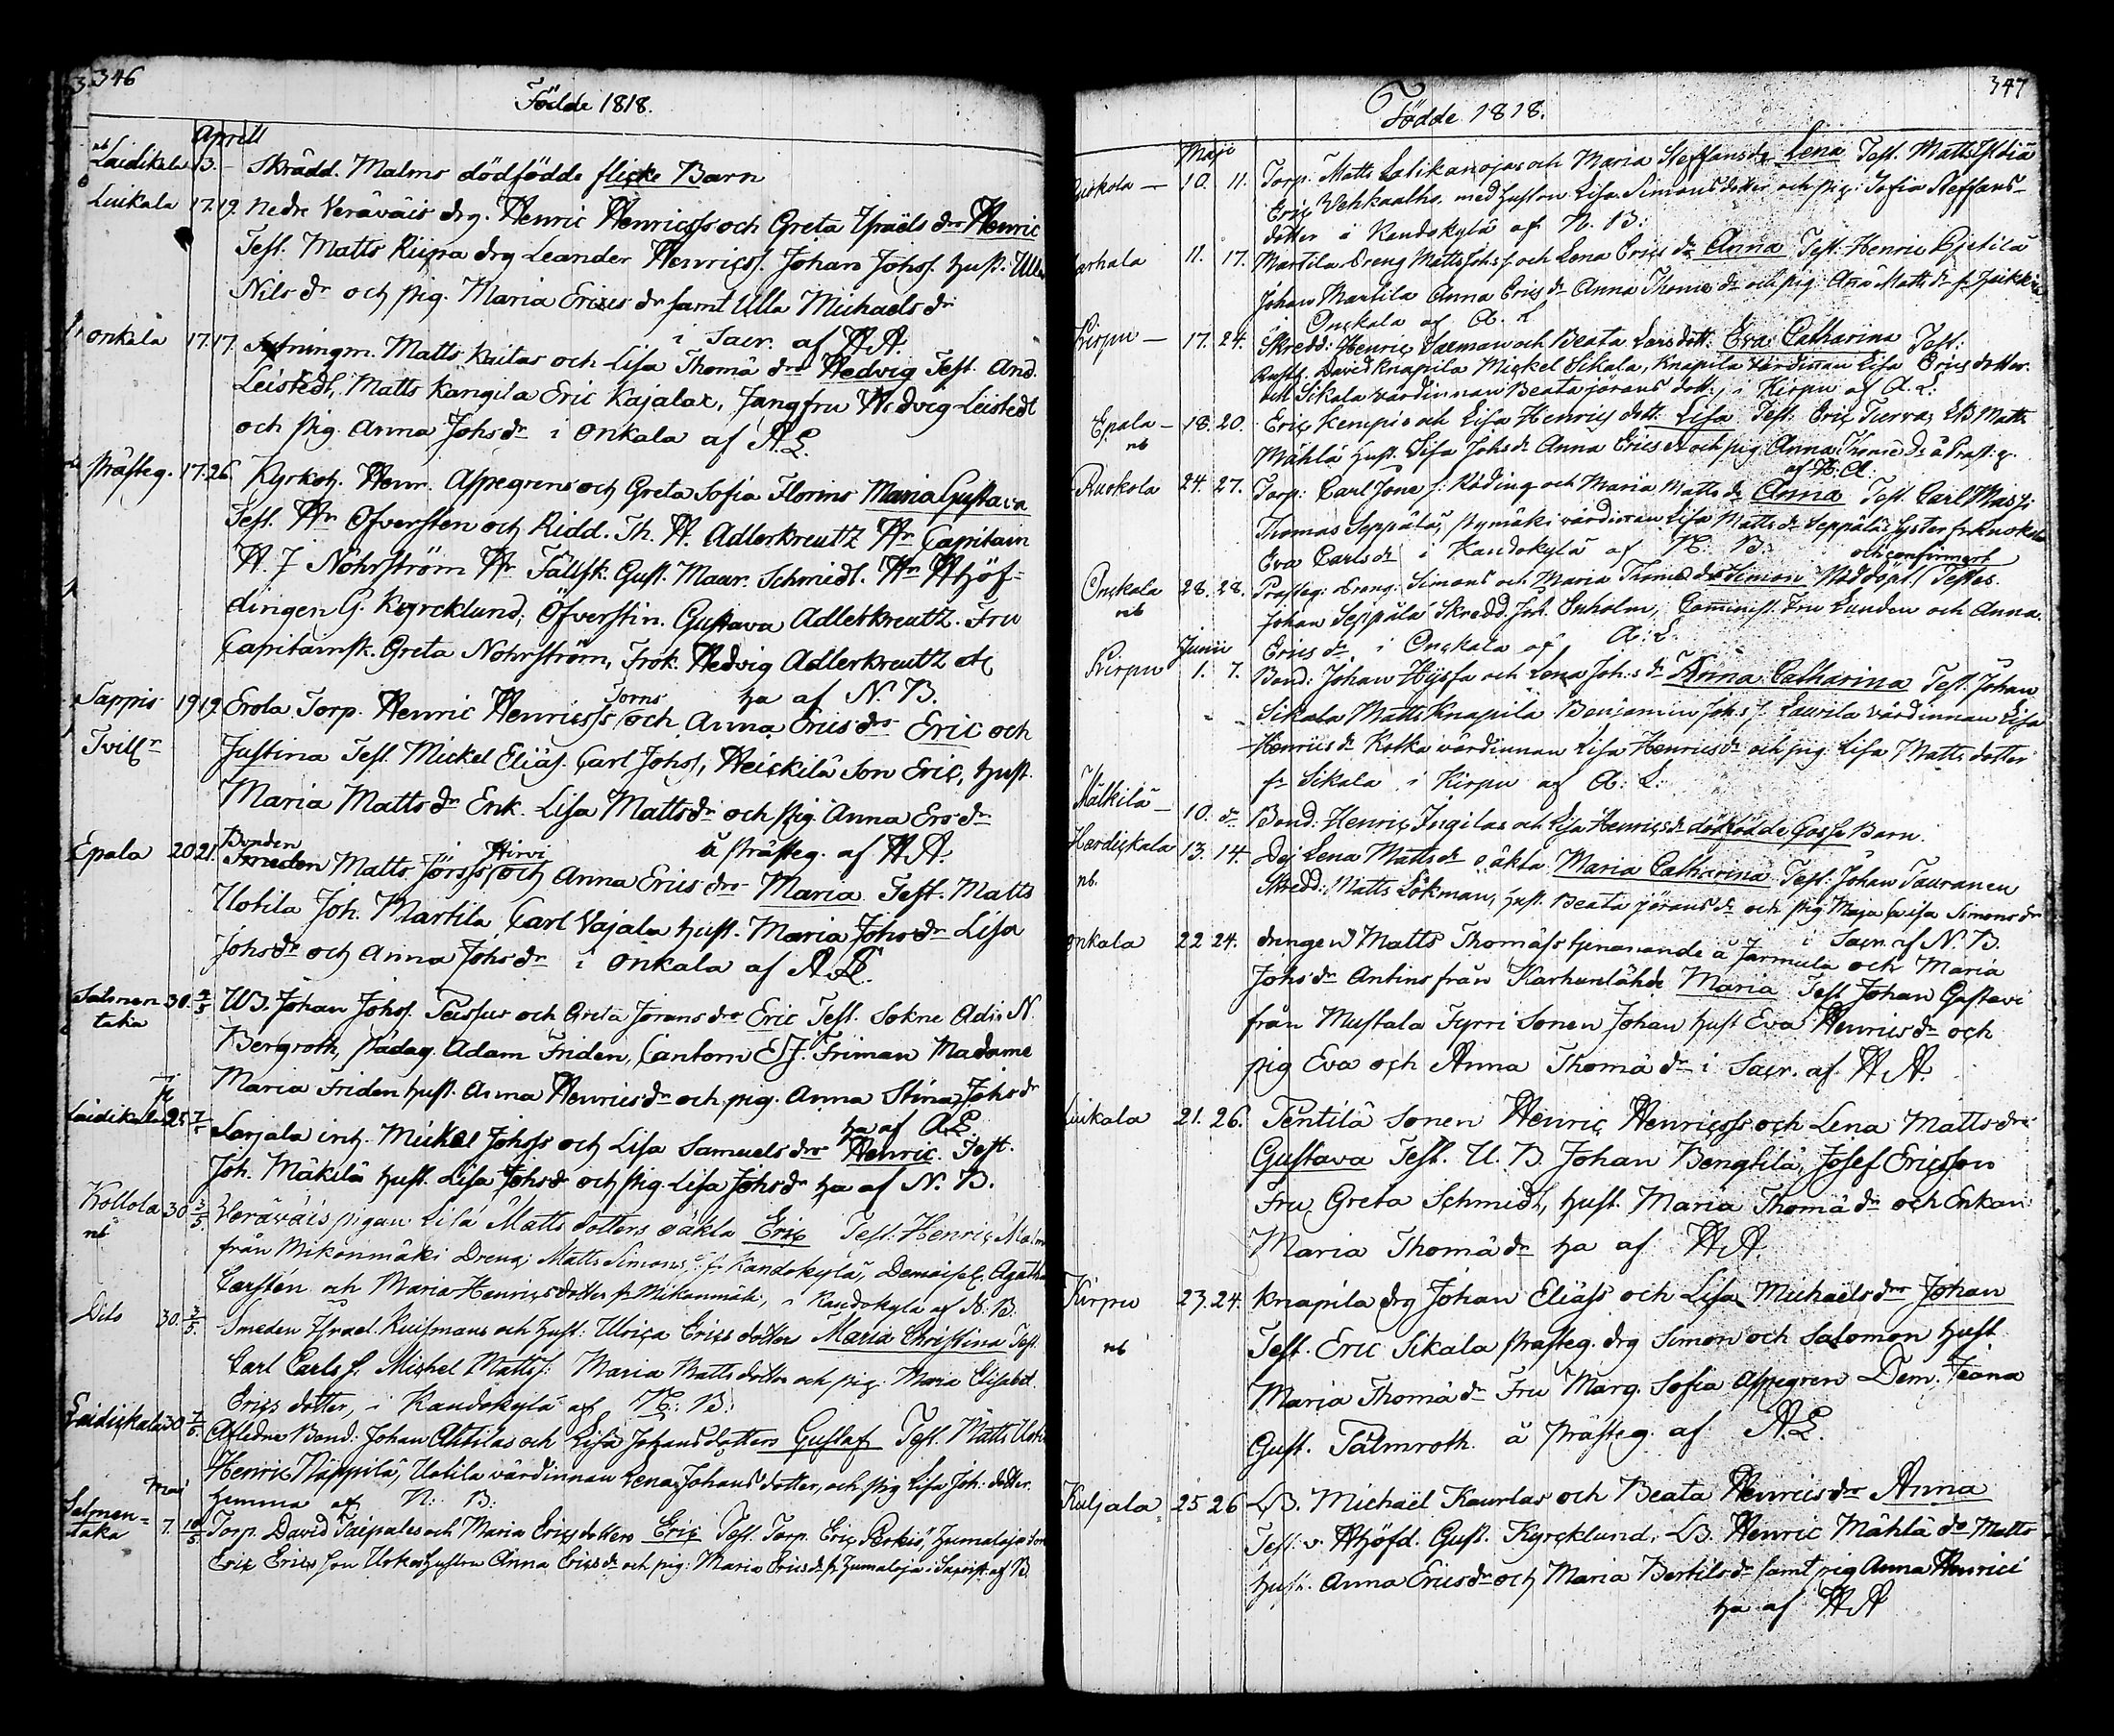 346
Födde 1818.
Aprill
nb
Laidikala 3. Skrädd. Malms dödfödde flicke Barn
Luikala 17. 19. Nedre Veräväis drg. Henric Henricss och Greta Israels drs Henric
Test. Matts Ripra drg Leander Henricss. Johan Johss. hust. Ulla
Nils dr och pig. Maria Erics dr samt Ulla Michaels dr
i Sacr. af HA.
Onkala 17. 17. Matts Kaitas och Lisa Thomä drs Hedvig Test. And.
Leistedt, Matts Kangila Eric Kajalax, Jungfru Hedvig Leistedt
och pig. Anna Johs dr i Onkala af A.L.
Prästeg. 17. 26. Kyrkoh. Henr. Aspegrens och Greta Sofia Florins Maria Gustava
Test. Hr Öfversten och Ridd. Th. H. Adlerkreutz Hr Capitain
H. J Nohrström Hr Fältsk. Gust. Maur. Schmidt. Hr Hhöf-
dingen G. Kyrcklund, Öfverstin. Gustava Adlerkreutz. Fru
Capitainsk. Greta Nohrström, Frök. Hedvig Adlerkreutz etc
ha af N. B.
Sappis 19 19 Erola Torp. Henric Henricss Torns och Anna Erics drs Eric och
Tvillr Justina Test. Mickel Eliäs. Carl Johss, Heickilä Son Eric, hust.
Maria Matts dr Enk. Lisa Matts dr och pig. Anna Ers dr
å Prästeg. af HA.
Epala 20 21. Bonden Smeden Matts Jörss Hirvi och Anna Erics drs Maria Test. Matts
Uotila Joh. Martila, Carl Vajala hust. Maria Johs dr Lisa
Johs dr och Anna Johs dr i Onkala af A.L.
Salmen-
taka 30. 4/5 UB. Johan Johss. Peissus och Greta Jörans drs Eric Test. Sokne Adj. N.
Bergroth, Pädag. Adam Friden, Cantorn E.J. Friman Madame
Maria Friden hust. Anna Henrics dr och pig. Anna Stina Johs dr
ha af A.L.
Laidikala 25 Sarjala inh. Mickel Johss och Lisa Samuels drs Henric. Test.
Joh. Mäkilä hust. Lisa Johs dr och pig. Lisa Johs dr ha af N. B.
Kollola 30 3/5 Veräväis pigan Lisa Matts dotters oäkta Eric Test: Henric
nb från Mikonmäki Dreng Matts Simons s. fr. Kandokylä, Demoisel. Agatha
Carstén och Maria Henrics dotter fr Mikonmäki, i Kandokyla af N. B.
Dito 30. 3/5. Smeden Israel Kuismans och hust: Ulrica Erics dotters Maria Christina Test.
Carl Carls s. Michel Matts s: Maria Matts dotter och pig. Maria Elisabet
Erics dotter, i Kandokylä af N: B:
Laidickala 30 Afledne Bond: Johan Anttilas och Lisa Johans dotters Gustaf Test. Matts
Henric Näppilä, Uotila värdinnan Lena Johans dotter, och pig Lisa Joh: dotter
hemma af N: B:
Mai
Salmen-
taka 7. 10/5. Torp. David Taipales och Maria Erics dotters Eric Test. Torp. Eric Perkiö, Humaloja Son
Eric Erics son hustru Anna Erics dr och pig: Maria Erics dr fr Humaloja i Sacrist. af B.
347
Födde 1818.
Maji
Ruokola 10. 11. Torp. Matts Latikanojas och Maria Steffans dr Lena Test. Matts
Eric Vehkaalho. med hustru Lisa Simons dotter och pig: Sofia Steffans-
dotter i Kandokylä af N. B:
11. 17. Martila Dreng Matts Johs s. och Lena Erics dr Anna Test: Henric
Johan Martila Anna Erics dr Anna Thomæ dr och pig: Anna Matts dr fr
Onckala af A. L
Kirpu 17. 24. Skredd: Henric Salman och Beata Larsdott: Eva Catharina Test:
Rusth. David Knapila Mickel Sikala, Knapila Värdinnan Lisa Erics dotter
och Sikala värdinnan Beata jörans dott:, i Kirpu af A. L:
Epala 18. 20. Eric Kempis och Lisa Henrics dott: Lisa Test. Eric Turva, LB Matts
nb Mähla hust. Lisa Johs dr Anna Erics dr och pig Anna Thomæ dr å Præst:g.
af H: A:
Ruokola 24. 27. Torp: Carl Jone s: Röding och Maria Matts dr Anna Test. Carl Massi
Thomas Seppälä, Nymäki värdinnan Lisa Matts dr Seppälä Syster fr Ruokola
Eva Carls dr i Kandokylä af N: B:
och confirmert
Onckala 28. 28. Præsteg: Dreng: Simons och Maria Thomæ drs Simon Nöddöpt. Testes.
nb Johan Seppälä Skredd. Joh. Enholm, Cominist. Fru Lunden och Anna
Erics dr i Onckala af A: L.
Junii
Kirpu 1. 7. Bond: Johan Hyssa och Lena Joh:s dr Anna Catharina Test. Johan
Sikala Matts Knapila Benjamin Johs s. Laurila värdinnan Lisa
Henrics dr Kotka värdinnan Lisa Henrics dr och pig. Lisa Matts dotter
fr Sikala i Kirpu af A: L:
Mälkilä 10. dr Bond: Henric Ingilas och Lisa Henrics dr dödfödde Gosse Barn.
Hardickala 13. 14. Dej Lena Matts dr oäkta Maria Catharina Test: Johan Tauranen
nb. Skredd: Matts Lökman, hust. Beata jörans dr och pig Maja Luisa Simons dr
i Sacr. af N. B.
Onkala 22 24. drengen Matts Thomäss tjenanande å Jarmula och Maria
Johs dr Antins från Karhunlähde Maria Test Johan Gustavi
från Mustala Fyrri Sonen Johan hust Eva Henrics dr och
pig Eva och Anna Thomä dr i Sacr. af HA.
Luikala 21. 26. Pentilä Sonen Henric Henricss och Lena Matts drs
Gustava Test. U. B Johan Bengtilä, Josef Ericsson
Fru Greta Schmidt, hust. Maria Thomä dr och Enkan
Maria Thomä dr ha af HA
Kirpu 23. 24. Knapila drg Johan Eliäss och Lisa Michaels drs Johan
nb Test. Eric Sikala Prästeg. drg Simon och Salomon hust
Maria Thomä dr Fru Marg. Sofia Aspegren Dem. Jeana
Gust. Palmroth. å Prästeg. af A.L.
Kuljala 25 26 LB. Michaël Kaurlas och Beata Henrics drs Anna
Test: v. Hhöfd. Gust. Kyrcklund. LB. Henric Mähla do Matts
hust. Anna Erics dr och Maria Bertils dr samt pig Anna Henrici
ha af HA